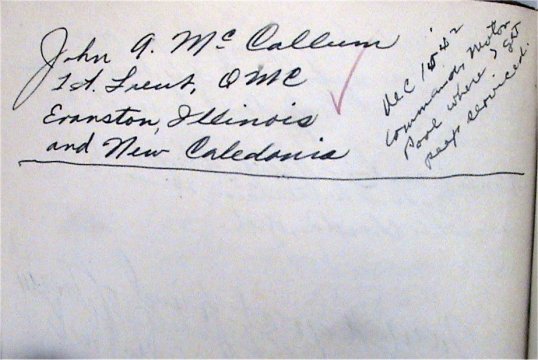 John A. McCallum
1st. Lieut, QMC
Evanston, Illinois
and New Caledonia
Dec 18 '42
Commands Motor
Pool where I get
Jeep serviced.